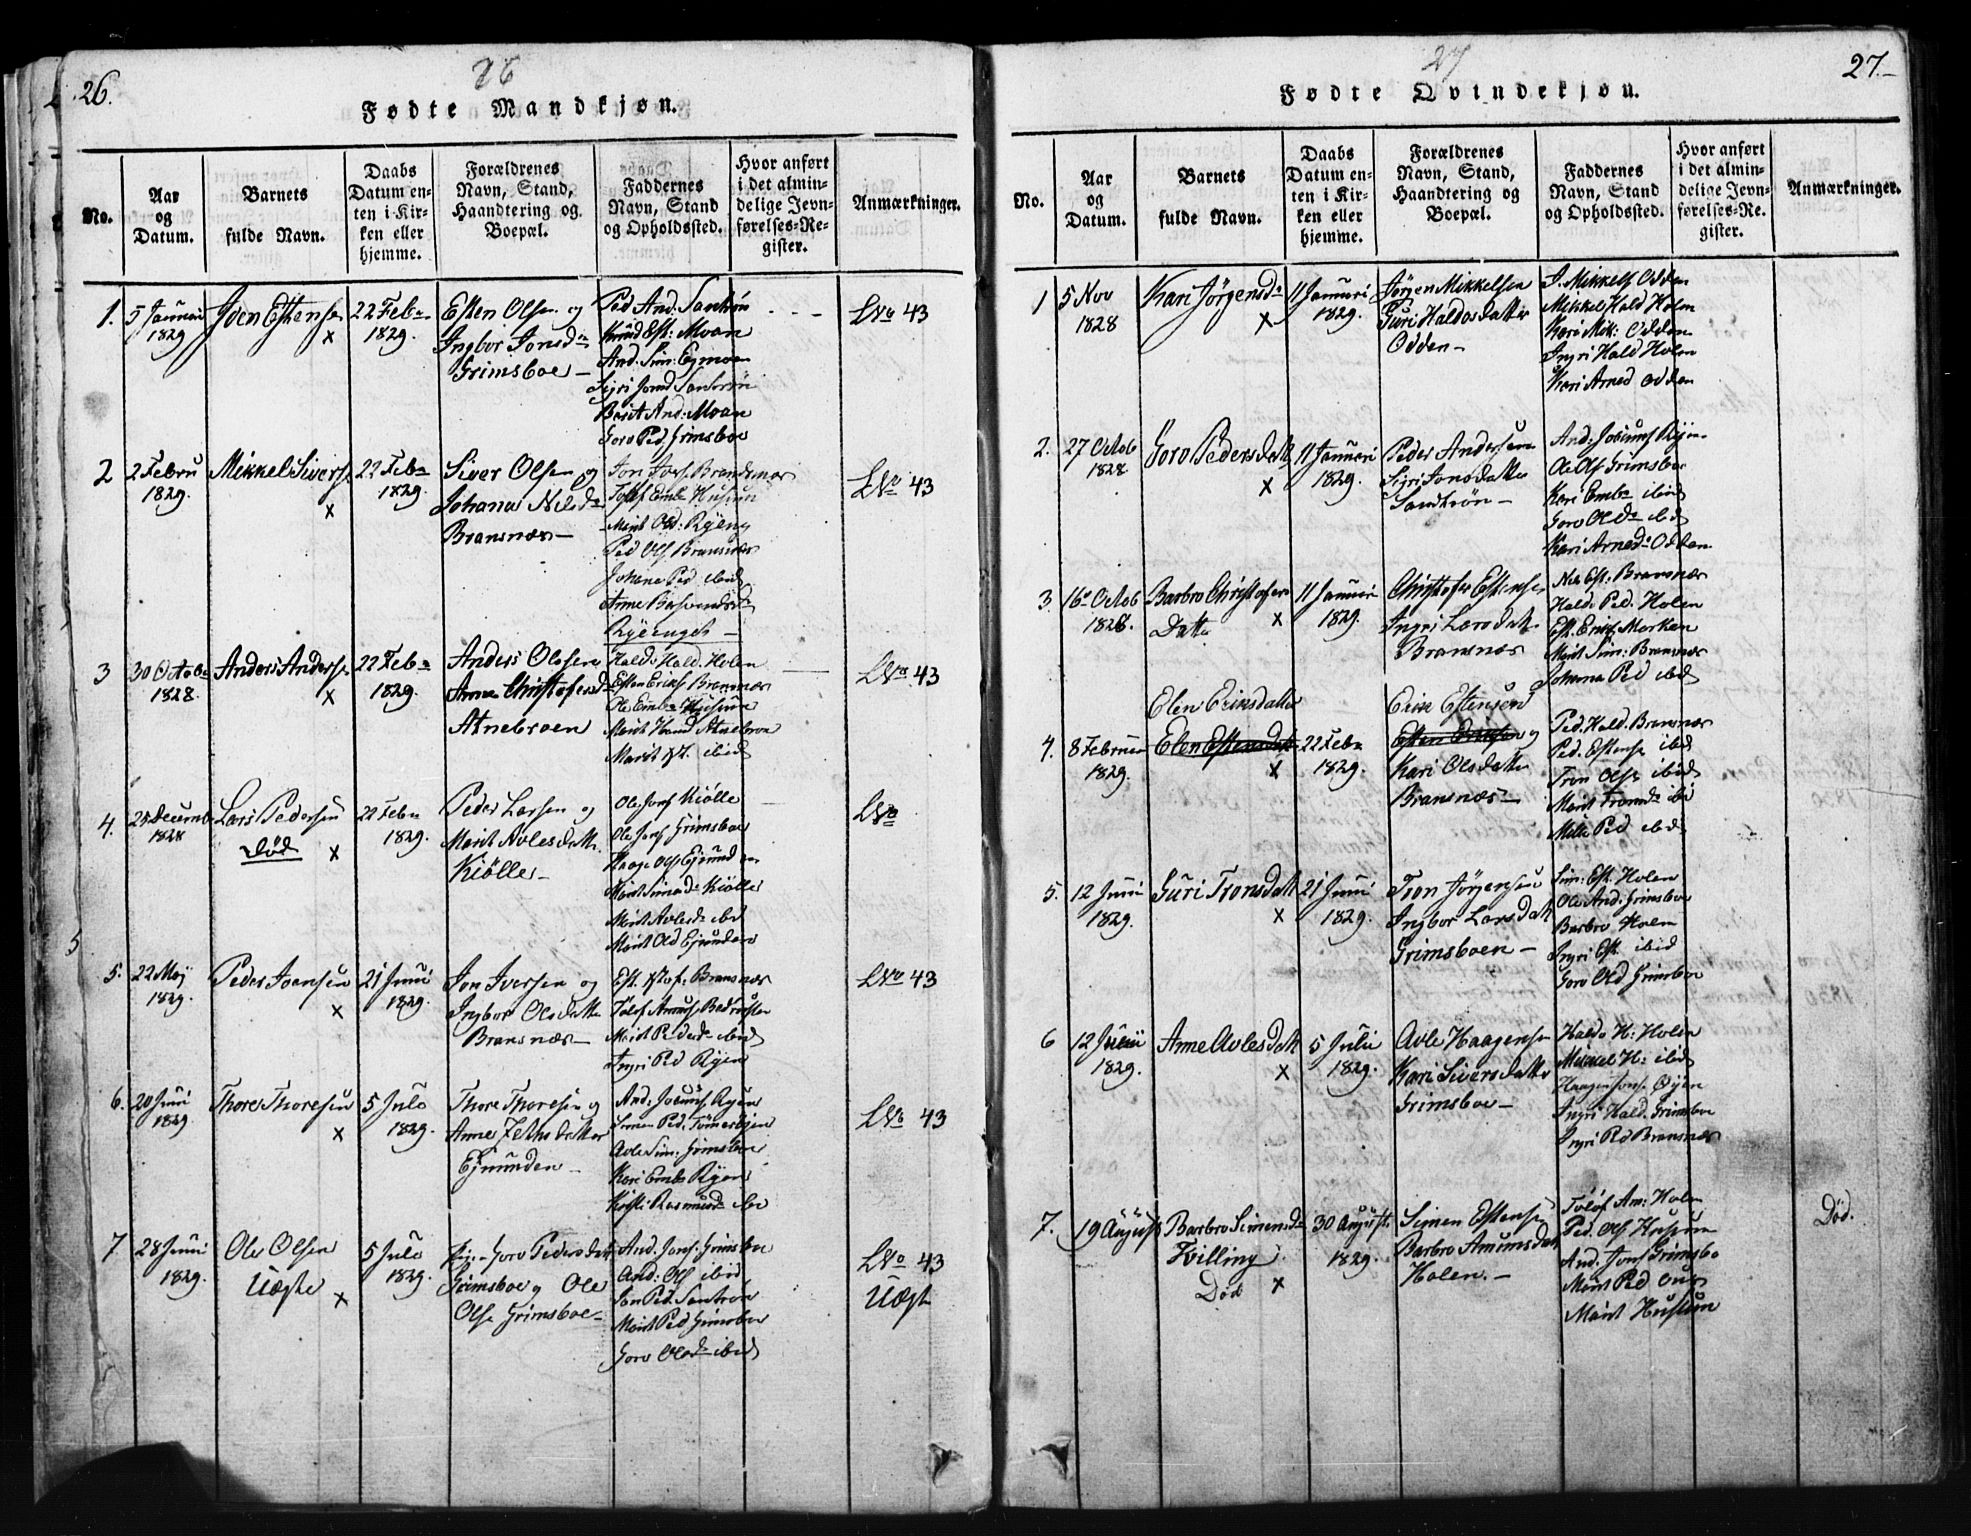 26.
26
Fødte Mandkjøn.
No.
Aar og Datum.
Barnets fulde Navn.
Daabs Datum enten i Kirken eller hjemme.
Forældrenes Navn, Stand, Haandtering og Boepæl.
Faddernes Navn, Stand og Opholdssted.
Hvor anført i det almindelige Jevnførelses-Register.
Anmærkninger.
1.
5 Januari
1829
Iven Estensen
x
22 Feb
1829.
Esten Olsen og
Ingbor Jonsd
Grimsboe
Ped And: Santrøn
Knud Est: Moan
And: Sim: Eg
Sigri Jonsd Santrøn
Berit And: Moan
Goro Ped Grimsboe
No 43
2
2 Febru
1829.
Mikkel Sivers
x
22 Feb
1829.
Siver Olsen og
Johana Nilsd
Bransnæs
Jon Brandsnæs
Emb Husum
Marit Old: Ryeng
Ped Ols Bransnæs
Johane Ped ibid
Anne
Ryeenget
No 43
3
30 Octob
1828.
Anders Anders
x
22 Feb
1829.
Anders Olosen
Anne Christofersd
Atnebroen
Hald Hald Holen
Esten Eriks Bransnæs
Ole Emb Husum
Marit Atnebroen
Marit ibid
No 43
4.
25 Decemb
1828
Lars Pedersen
død
x
22 Feb
1829.
Peder Larsen og
Marit Avlesdatt
Kiølle
Ole Jons Kiølle
Ole Jons Grimsboe
Haage Ols Ejmunden
Marit Simensd Kiølle
Marit Avlesd ibd
Marit Old Ejmunden
No
5
5.
22 Maj
1829.
Peder Joensen
x
21 Juni
1829.
Jon Iversen og
Ingbor Olsdatter
Bransnæs
Est. Bransnæs
Marit Pedersd ibid
Ingri Ped Ryen
No 43
6.
20 Juni
1829
Thore Thoresen
x
5 Julo
1829.
Thore Thoresen og
Anne
Ejmunden
And: Ryen
Simen Ped.
Avle Sim: Grimsboe
Kari Emb Ryen
Rasmusd ibd
No 43
7
28 Juni
1829.
Ole Olsen
Uægte
x
5 Julo
1829.
Pige Goro Pedersdatt
Grimsboe og Ole
Ols Grimsboe
And. Jons: Grimsboe
And: Ols ibid
Jon Ped. Santrøn
Marit Ped Grimsboe
Goro Olsd ibid
No 43
Uægt
27
27.
Fødte Qvindekjøn.
No.
Aar og Datum.
Barnets fulde Navn.
Daabs Datum enten i Kirken eller hjemme.
Forældrenes Navn, Stand, Haandtering og Boepæl.
Faddernes Navn, Stand og Opholdssted.
Hvor anført i det almindelige Jevnførelses-Register.
Anmærkninger.
1
5 Nov
1828
Kari Jørgensd
x
11 Januari
1829.
Jørgen Mikkelsen
Guri Haldosdatter
Odden
J. Mikkels Odden
Mikkel Hald Holen
Kari Mik: Odden
Ingri Hald Holen
Kari Arned Odden
2.
27 Octob
1828.
Goro Pedersdatt
x
11 Januari
1829.
Peder Andersen
Sigri Jonsdatter
Sandtrøn
And: Ryen
Ole Ols Grimsboe
Kari Emb ibid
Goro Old ibid
Kari Arned Odden
3.
16 Octob
1828.
Barbro Christofers
Datter
x
11 Januari
1829.
Christofer Estensen
Ingri Larsdatt
Bransnæs
Nels Est: Bransnæs
Hald Ped. Holen
Est. Eriks Morken
Marit Sim: Bransnæs
Johanna Ped ibid
4.
8 Februar
1829.
Elen Eriksdatter
Elen Estensdatt
x
22 Feb
1829.
Erik Estensen
Esten Eriksen og
Kari Olsdatter
Bransnæs
Ped. Hald. Bransnæs
Ped. Estense ibid
Tron Olsen ibid
Marit Tronsd ibi
Mille Ped ibid
5.
12 Juni
1829.
Guri Tronsdatt
x
21 Juni
1829.
Tron Jørgensen
Ingbor Larsdatt
Grimsboen
Sim: Est. Holen
Ole And. Grimsboe
Barbro Holen
Ingri Est. ibid
Goro Old Grimsboe
6
12 Junii
1829.
Anne Avlesdatt
x
5 Julii
1829.
Avle Haagensen
Kari Siversdatter
Grimsboe
Haldo H: Holen
Mikkel H: ibid
Haagen Jons Øyen
Ingri Hald. Grimsboe
Ingri Ped Bransnæs
7.
19 August
Barbro Simensd
Tvilling
Død
x
30 August
1829.
Simen Estensen
Barbro Amunsdatt
Holen.
Toløf Am: Holen
Ped. Ols Husum
And. Jons Grimsbo
Marit Ped
Marit Husum
Død.